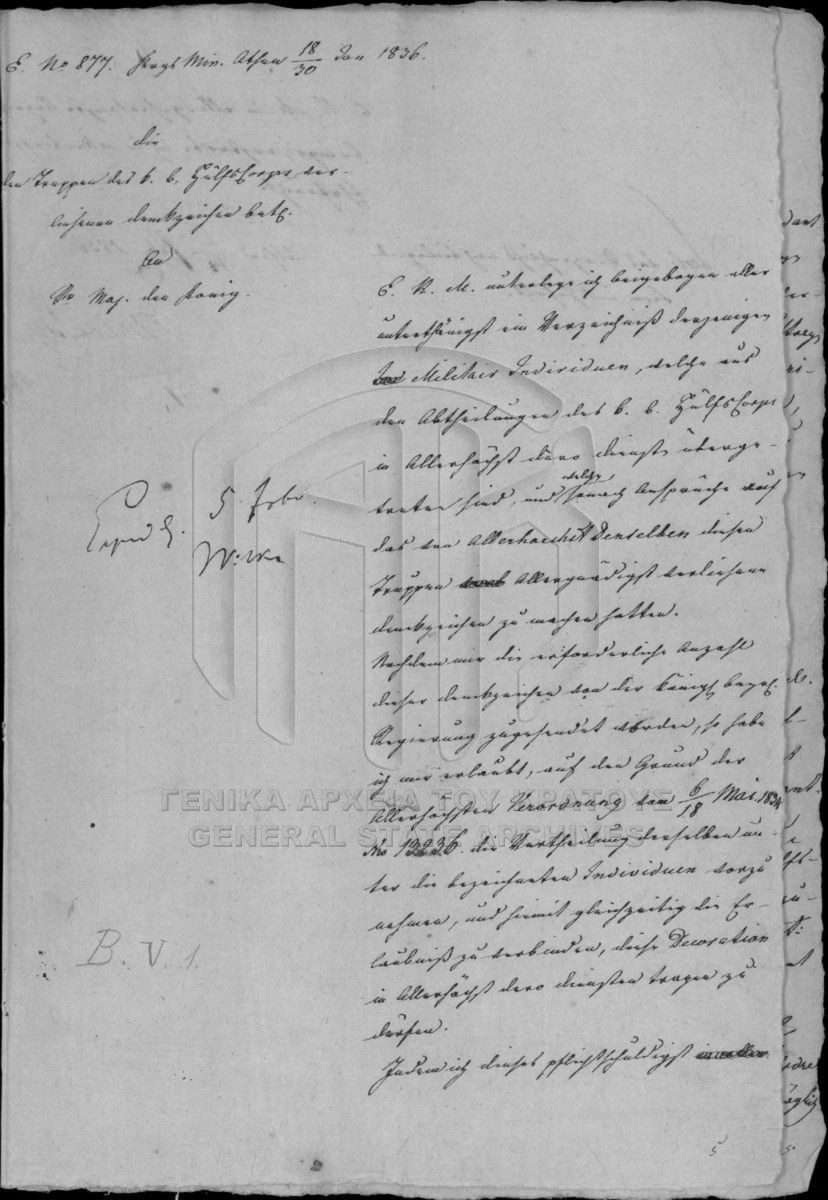 E. No 877. Krgs Min. Athen 18/30 Jan 1836.
die
den Truppen des k. b. HülfsCorps ver-
liehenen Denkzeichen betr.
An
Se Maj. den König.
E. K. M. unterlege ich beigebogen aller
unterthänigst ein Verzeichniß derjenigen
Militair Individuen, welche aus
den Abtheilungen des k. b. HülfsCorps
in Allerhöchst dero Dienste überge-
treten sind, und welche sonach Ansprüche auf
das von Allerhoechst Denselben diesen
Truppen Allergnädigst verliehene
Denkzeichen zu machen hatten.
Nachdem mir die erforderliche Anzahl
dieser Denkzeichen von der Königl. bayr.
Regierung zugesendet worden, so habe
ich mir erlaubt, auf den Grund der
Allerhöchsten Verordnung vom 6/18 Mai 1834
No 13236. die Vertheilung derselben un-
ter die bezeichneten Individuen vorzu
nehmen, und hiemit gleichzeitig die Er-
laubniß zu verbinden, diese Decoration
in Allerhöchst dero Diensten tragen zu
dürfen.
Indem ich dieses pflichtschuldigst
Exped. 5 Febr.
B. V. 1.
5
ΓΕΝΙΚΑ ΑΡΧΕΙΑ ΤΟΥ ΚΡΑΤΟΥΣ
GENERAL STATE ARCHIVES